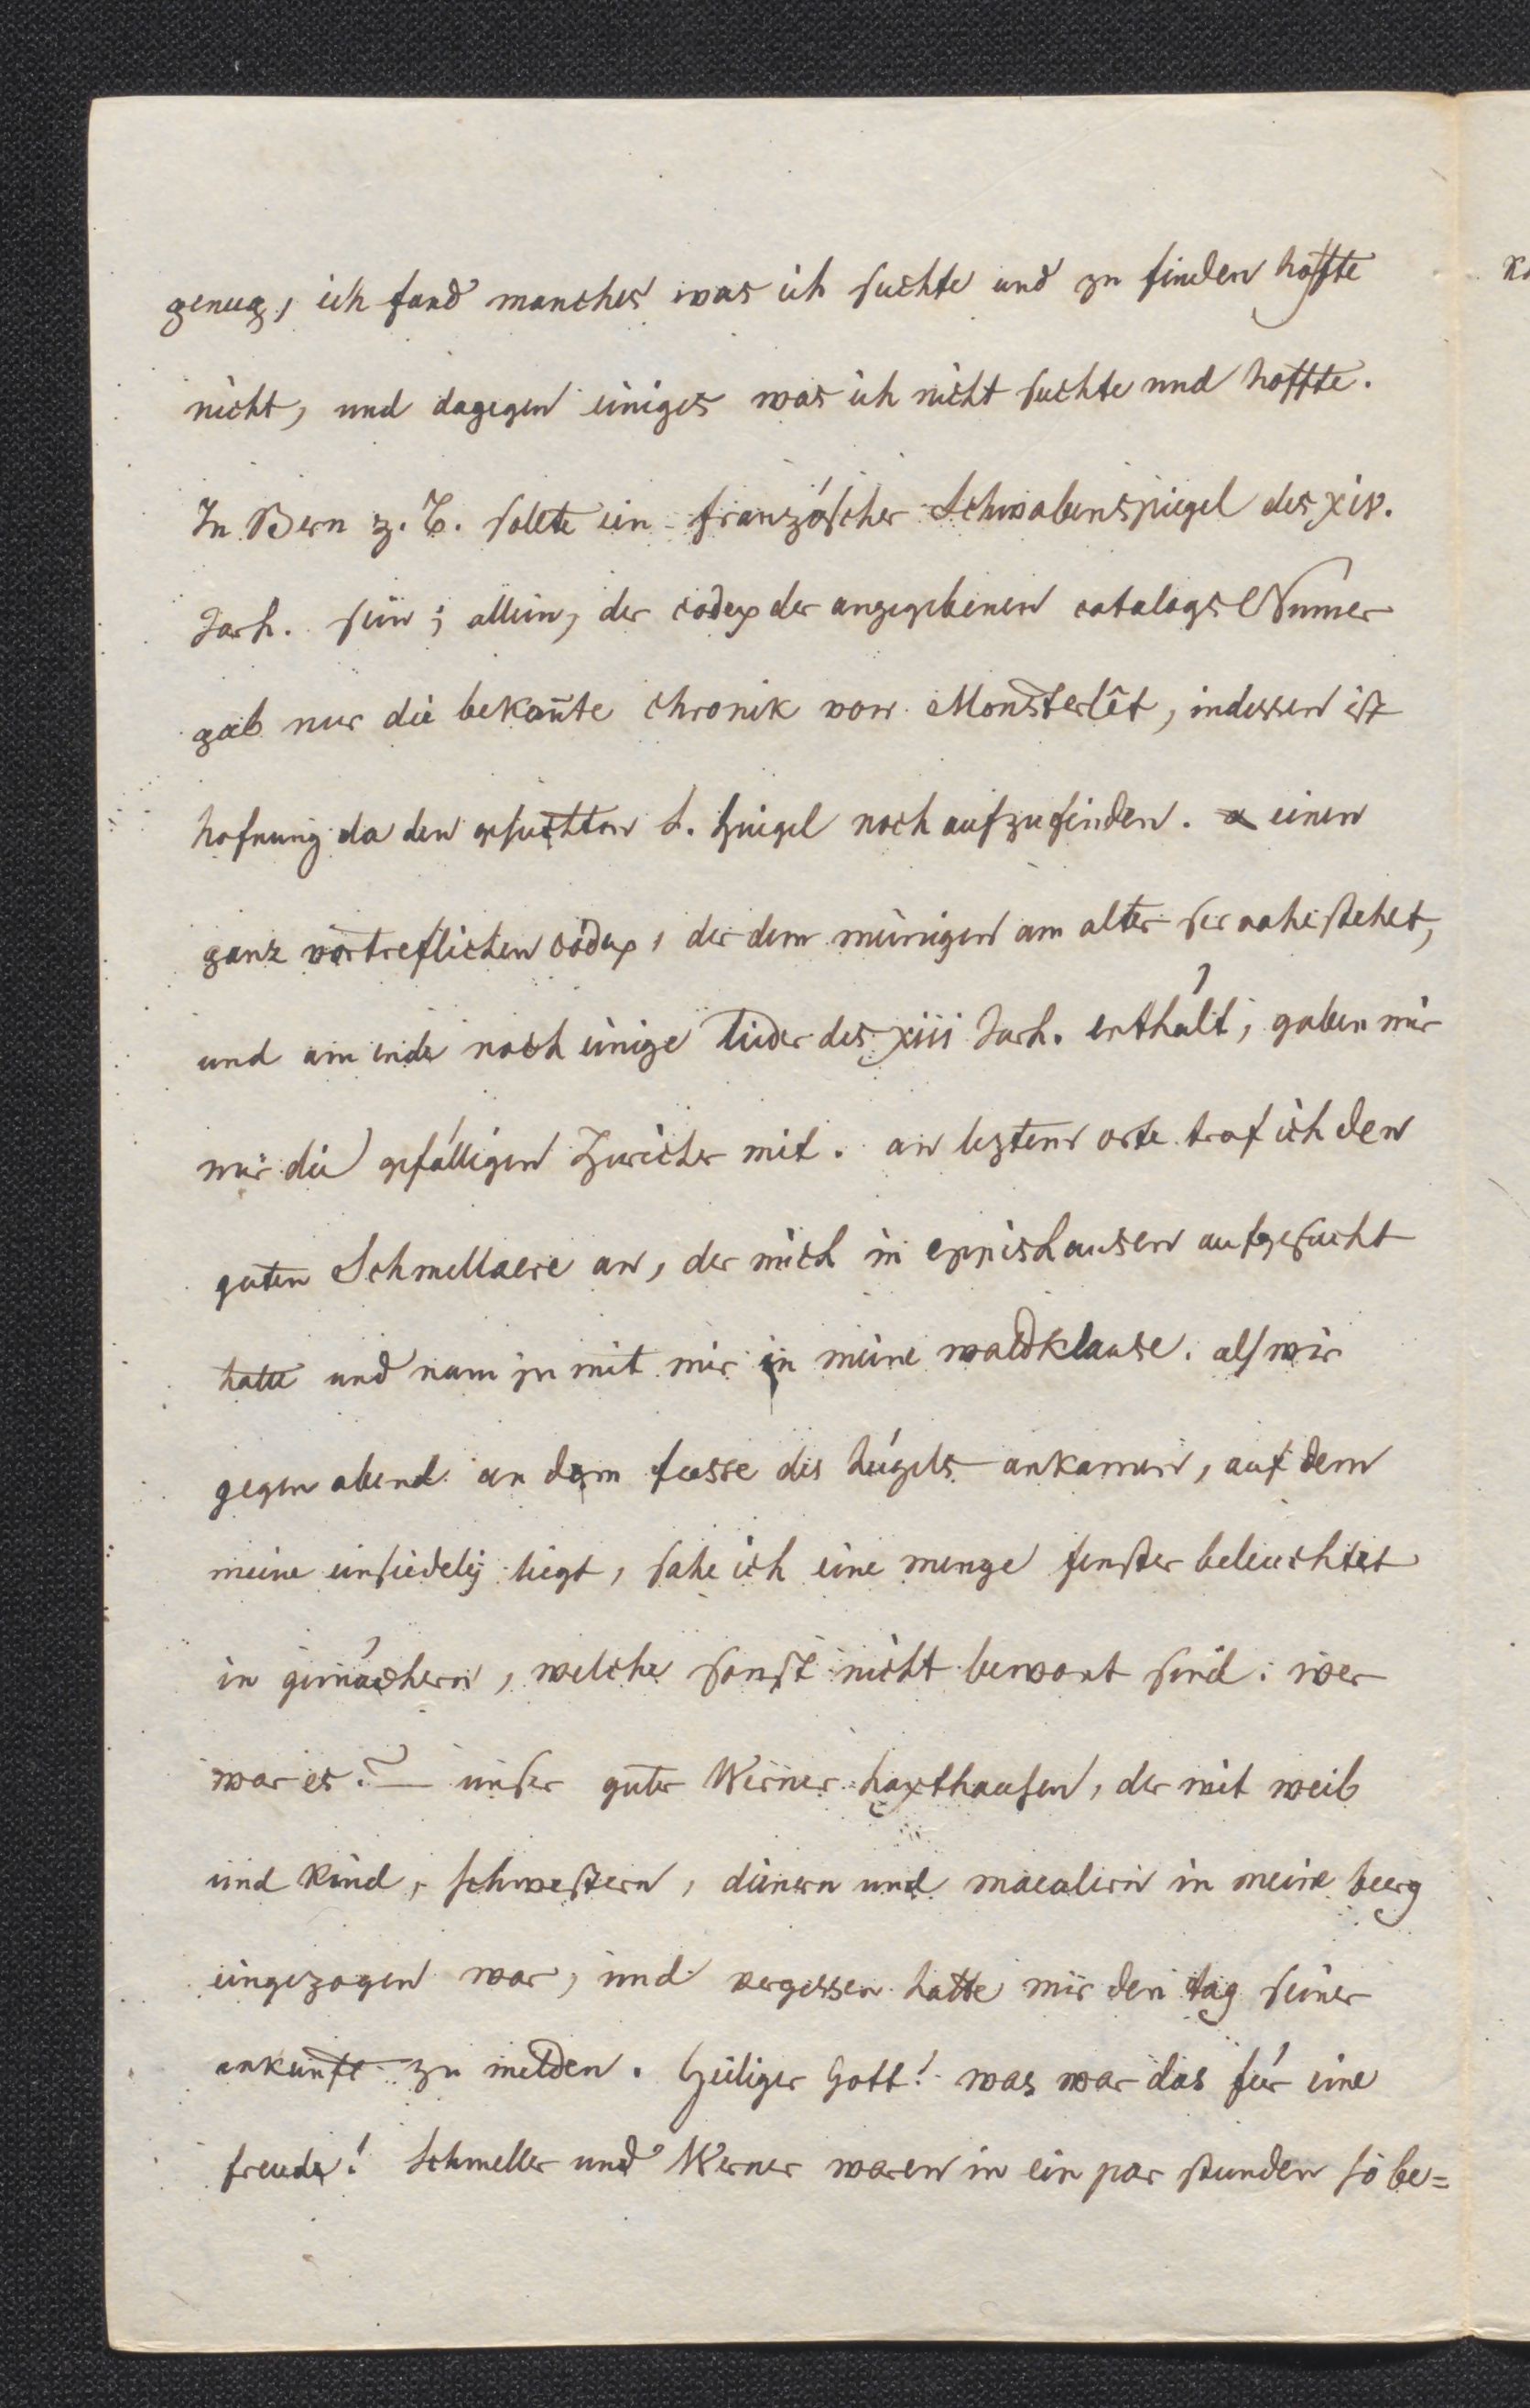 genug, ich fand manches was ich suchte und zu finden hoffte
nicht, und dagegen einiges was ich nicht suchte und hoffte.
In Bern z. B. sollte ein französcher Schwabenspiegel des xiv.
Jarh. sein; allein, der codex der angegebenen catalogs Numer
gab nur die bekan̄te chronik von Monsterlêt, indessen ist
hofnung da den gesuchten S. Spiegel noch aufzufinden. einen
ganz vortreflichen codex, der dem meinigen am alter ser nahe stehet,
und am ende noch einige lieder des xiii Jarh. enthält, gaben mir
mir die gefälligen Züricher mit. an leztem orte traf ich den
guten Schmellaere an, der mich in eppishausen aufgesucht
hatte und nam jn mit mir in meine waldklause. als wir
gegen abend an dem fusse des hügels ankamen, auf dem
meine einsiedelij liegt, sahe ich eine menge fenster beleuchtet
in gemächern, welche sonst nicht bewont sind. wer
war es? — unser guter Werner haxthausen, der mit weib
und kind, schwestern, dienern und maealern in meine burg
eingezogen war, und vergessen hatte mir den tag seiner
ankunft zu melden. heiliger Gott! was war das für eine
freude! Schmeller und Werner waren in ein par stunden so be=